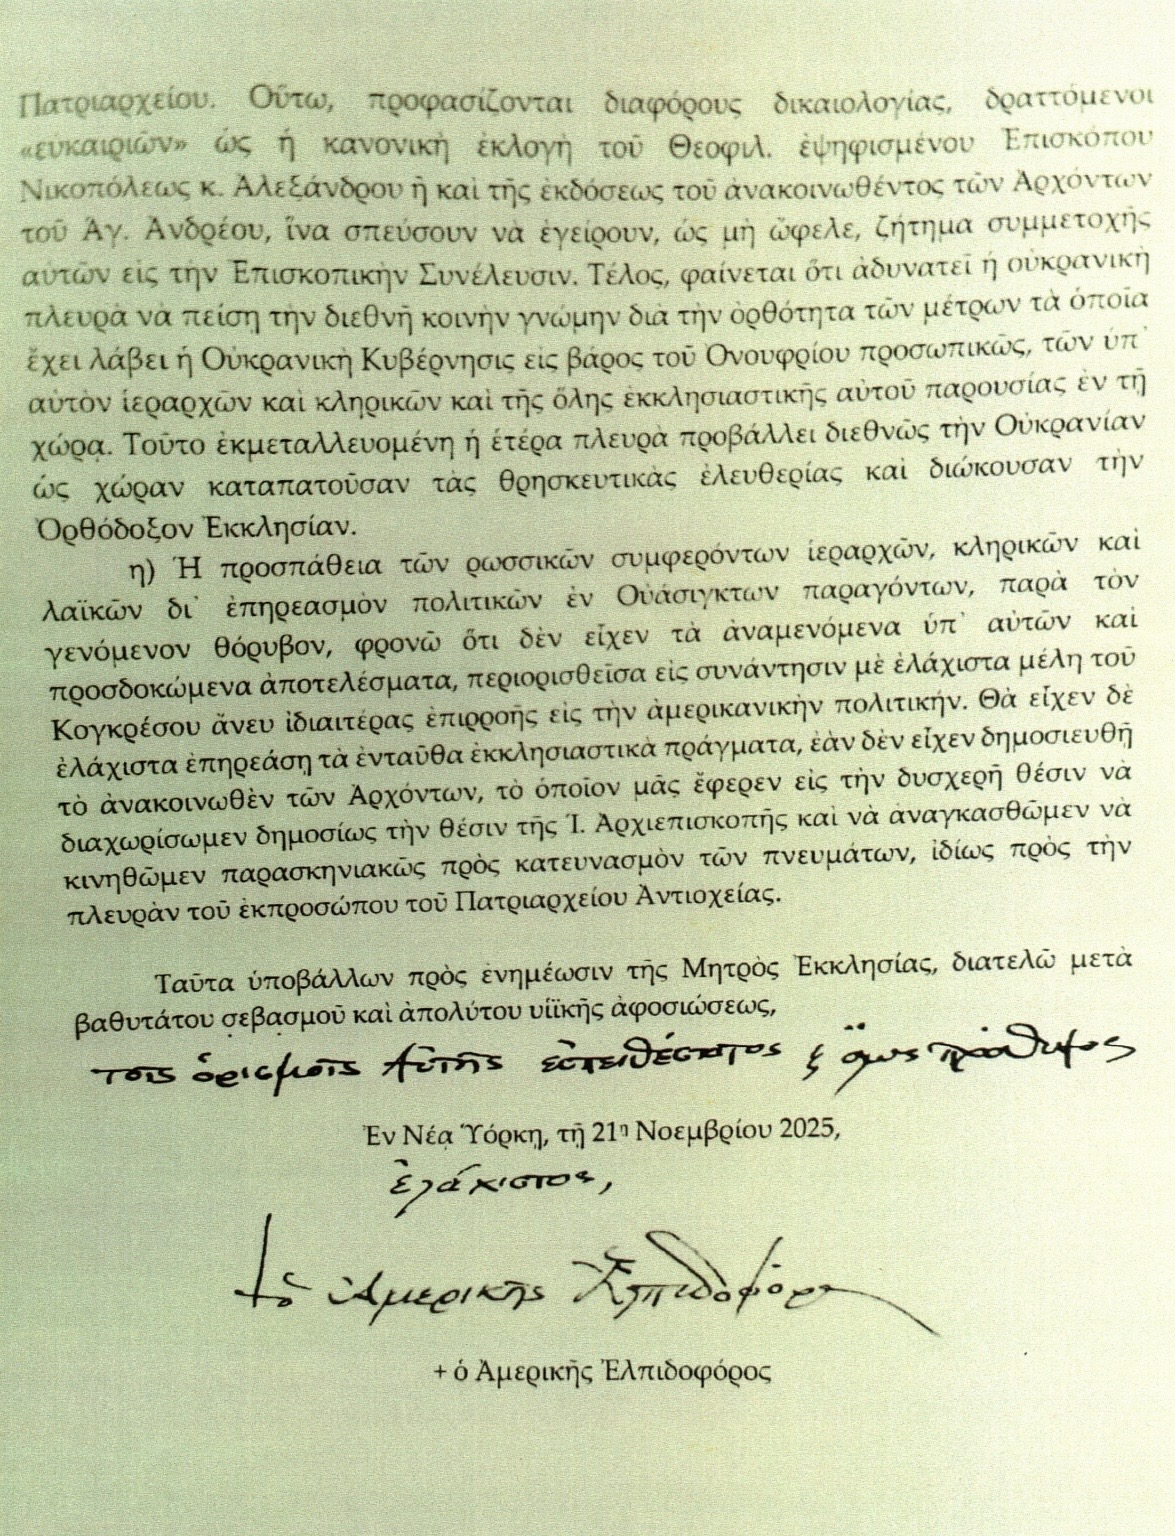 Πατριαρχείου. Οὕτω, προφασίζονται διαφόρους δικαιολογίας, δραττόμενοι
«εὐκαιριῶν» ὡς ἡ κανονικὴ ἐκλογὴ τοῦ Θεοφιλ. ἐψηφισμένου Ἐπισκόπου
Νικοπόλεως κ. Ἀλεξάνδρου ἢ καὶ τῆς ἐκδόσεως τοῦ ἀνακοινωθέντος τῶν Ἀρχόντων
τοῦ Ἁγ. Ἀνδρέου, ἵνα σπεύσουν νὰ ἐγείρουν, ὡς μὴ ὤφελε, ζήτημα συμμετοχῆς
αὐτῶν εἰς τὴν Ἐπισκοπικὴν Συνέλευσιν. Τέλος, φαίνεται ὅτι ἀδυνατεῖ ἡ οὐκρανικὴ
πλευρὰ νὰ πείσῃ τὴν διεθνῆ κοινὴν γνώμην διὰ τὴν ὀρθότητα τῶν μέτρων τὰ ὁποῖα
ἔχει λάβει ἡ Οὐκρανικὴ Κυβέρνησις εἰς βάρος τοῦ Ὀνουφρίου προσωπικῶς, τῶν ὑπ᾽
αὐτὸν ἱεραρχῶν καὶ κληρικῶν καὶ τῆς ὅλης ἐκκλησιαστικῆς αὐτοῦ παρουσίας ἐν τῇ
χώρᾳ. Τοῦτο ἐκμεταλλευομένη ἡ ἑτέρα πλευρὰ προβάλλει διεθνῶς τὴν Οὐκρανίαν
ὡς χώραν καταπατοῦσαν τὰς θρησκευτικὰς ἐλευθερίας καὶ διώκουσαν τὴν
Ὀρθόδοξον Ἐκκλησίαν.
η) Ἡ προσπάθεια τῶν ρωσσικῶν συμφερόντων ἱεραρχῶν, κληρικῶν καὶ
λαϊκῶν δι᾽ ἐπηρεασμὸν πολιτικῶν ἐν Οὐάσιγκτων παραγόντων, παρὰ τὸν
γενόμενον θόρυβον, φρονῶ ὅτι δὲν εἶχεν τὰ ἀναμενόμενα ὑπ᾽ αὐτῶν καὶ
προσδοκώμενα ἀποτελέσματα, περιορισθεῖσα εἰς συνάντησιν μὲ ἐλάχιστα μέλη τοῦ
Κογκρέσου ἄνευ ἰδιαιτέρας ἐπιρροῆς εἰς τὴν ἀμερικανικὴν πολιτικήν. Θὰ εἶχεν δὲ
ἐλάχιστα ἐπηρεάσῃ τὰ ἐνταῦθα ἐκκλησιαστικὰ πράγματα, ἐὰν δὲν εἶχεν δημοσιευθῇ
τὸ ἀνακοινωθὲν τῶν Ἀρχόντων, τὸ ὁποῖον μᾶς ἔφερεν εἰς τὴν δυσχερῆ θέσιν νὰ
διαχωρίσωμεν δημοσίως τὴν θέσιν τῆς Ἱ. Ἀρχιεπισκοπῆς καὶ νὰ ἀναγκασθῶμεν νὰ
κινηθῶμεν παρασκηνιακῶς πρὸς κατευνασμὸν τῶν πνευμάτων, ἰδίως πρὸς τὴν
πλευρὰν τοῦ ἐκπροσώπου τοῦ Πατριαρχείου Ἀντιοχείας.
Ταῦτα ὑποβάλλων πρὸς ἐνημέωσιν τῆς Μητρὸς Ἐκκλησίας, διατελῶ μετὰ
βαθυτάτου σεβασμοῦ καὶ ἀπολύτου υἱϊκῆς ἀφοσιώσεως,
τοῖς ὁρισμοῖς Αὐτῆς εὐπειθέστατος
Ἐν Νέᾳ Ὑόρκῃ, τῇ 21ῃ Νοεμβρίου 2025,
ἐλάχιστος,
+ ὁ Ἀμερικῆς Ἐλπιδοφόρος
+ ὁ Ἀμερικῆς Ἐλπιδοφόρος